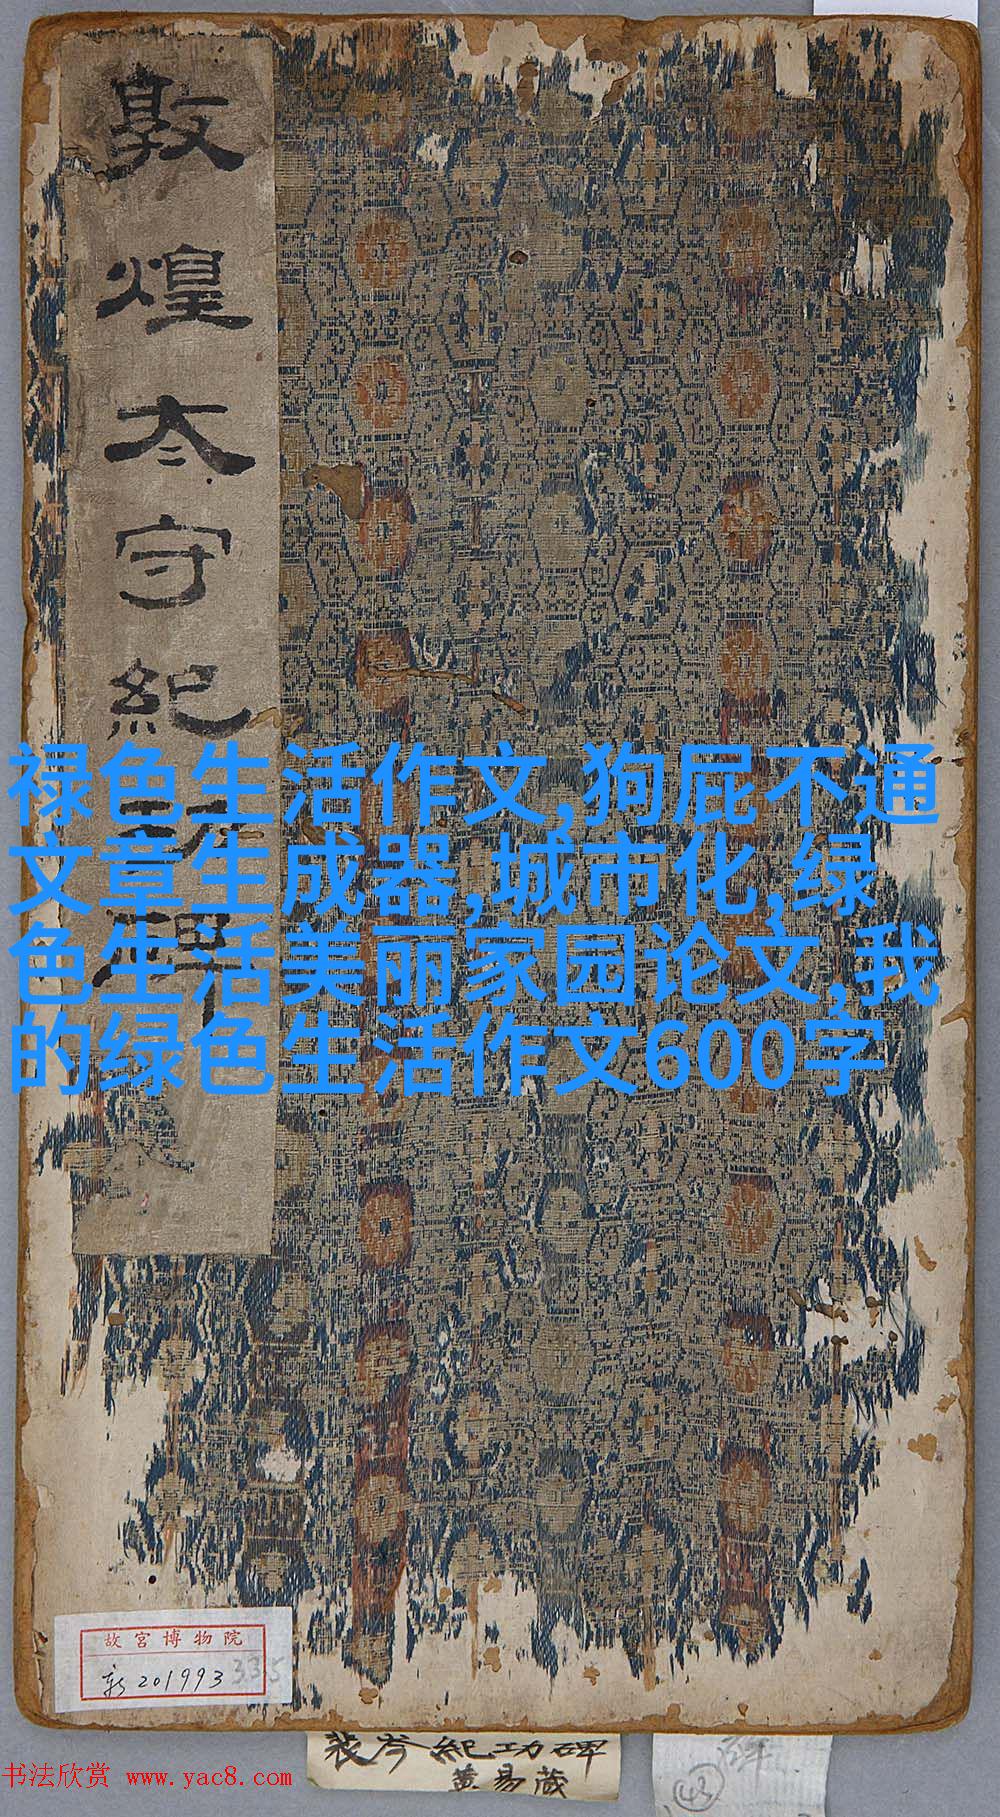 敦煌太守紀功碑
禄色生活作文,狗屁不通
文章生成器,城市化,绿
色生活美丽家园论文,我
的绿色生活作文600字
故宫博物院
新201993
335
裴岑紀功碑
黄易藏
43
书法欣赏 www.yac8.com